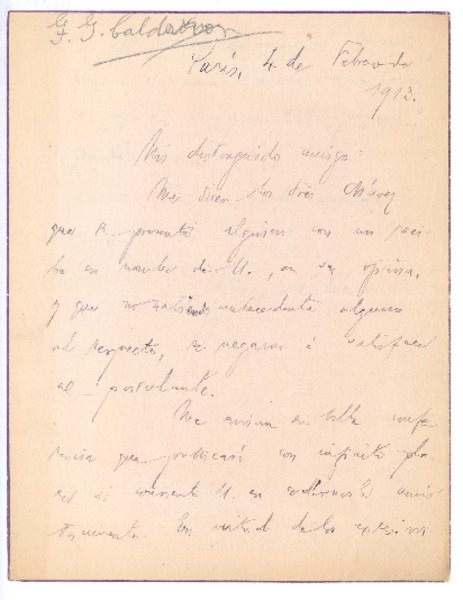 G. G. Calderon
París, 4 de Febrero de
1913.
Mi distinguido amigo:
Me dicen los Srs
que se presentó alguien con un reci-
bo en nombre de U., en su oficina,
y que no teniendo antecedente alguno
al respecto, se negaron á satisfacer
al postulante.
Me envía su bella confe-
rencia que publicaré con infinito pla-
cer si consiente U. en
En virtud de la